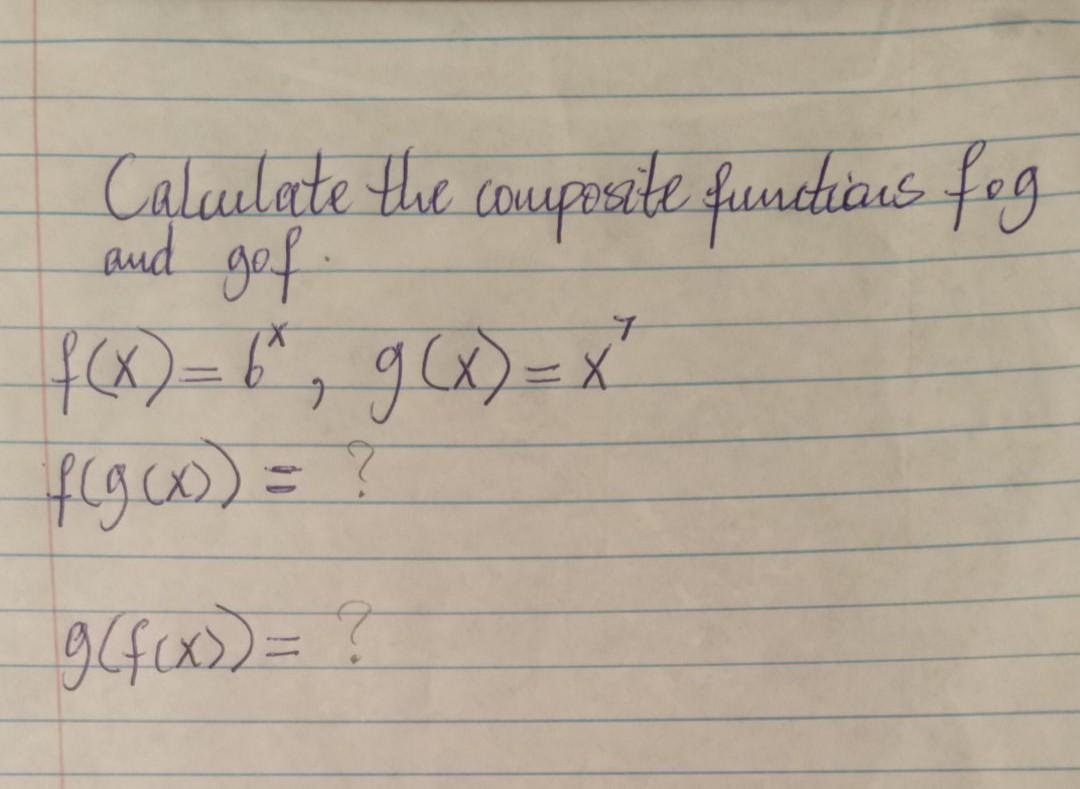 Calculate the composite functions fog
and gof.
f(x) = 6ˣ, g(x) = x⁷
f(g(x)) = ?
g(f(x)) = ?